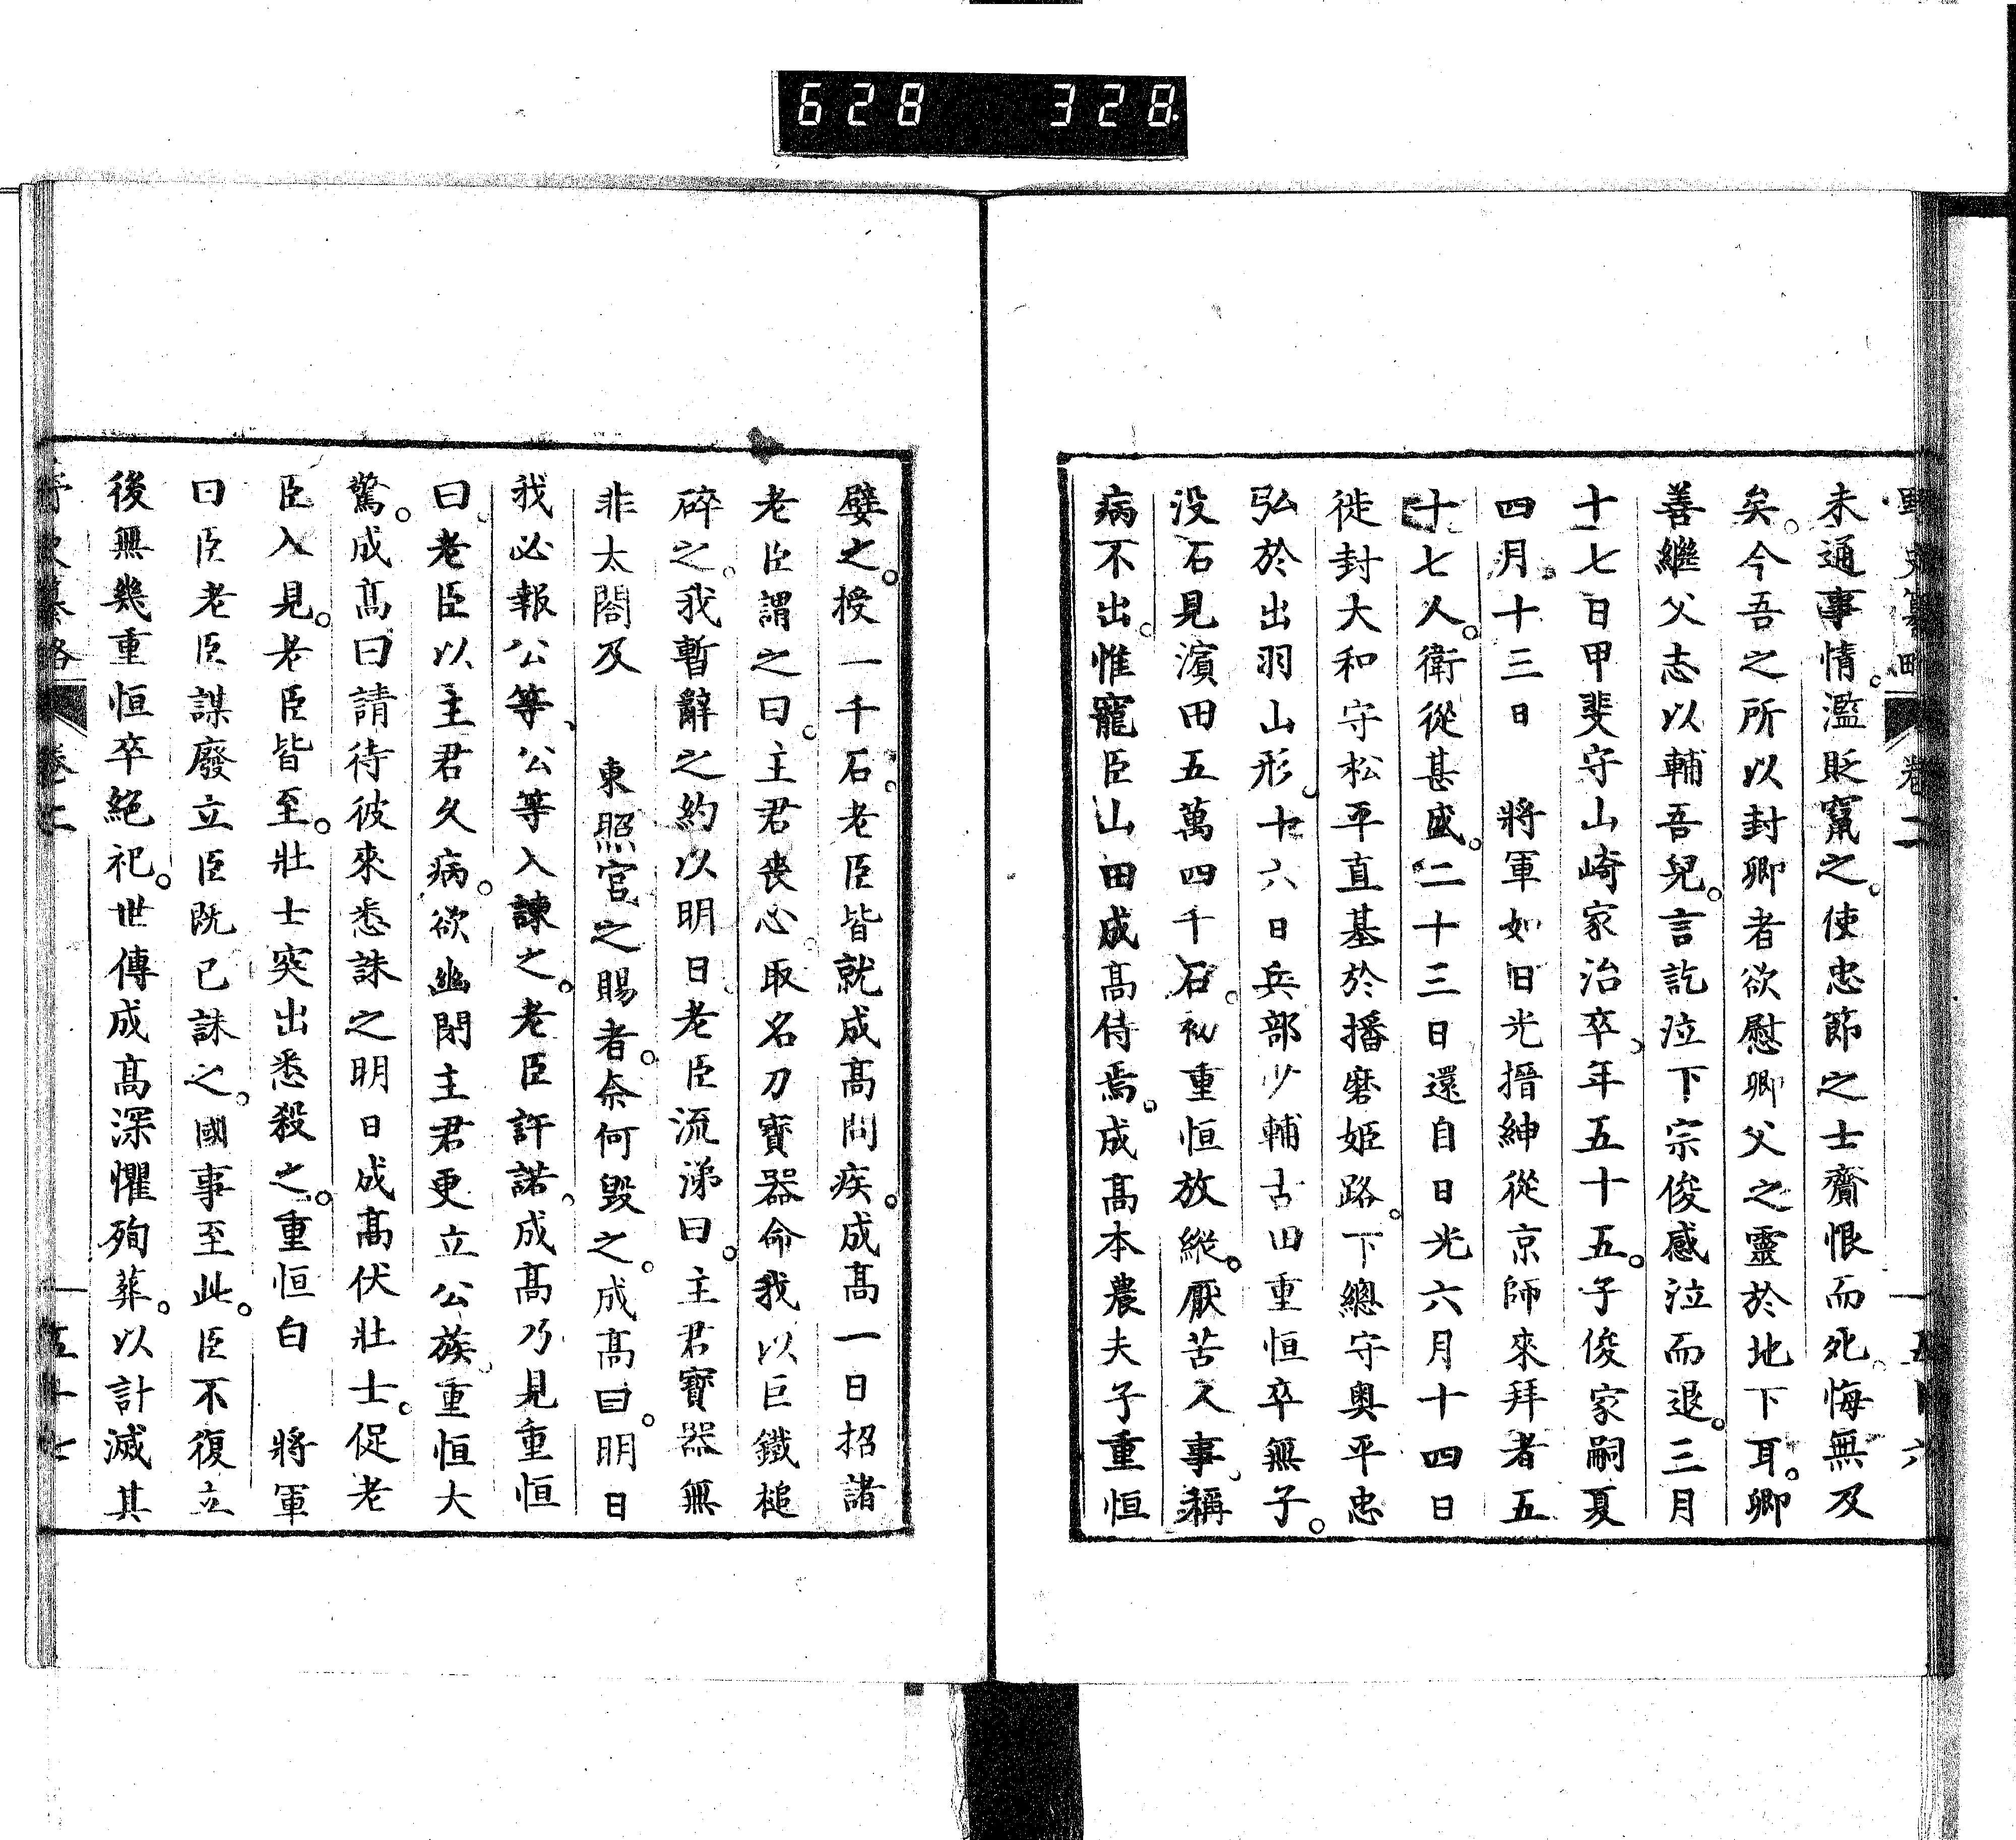 628 328
野史纂略 卷二 一 五十六
未通事情。濫貶竄之。使忠節之士齎恨而死。悔無及
矣。今吾之所以封卿者欲慰卿父之靈於地下耳。卿
善繼父志以輔吾兒。言訖泣下宗俊感泣而退。三月
十七日甲斐守山崎家治卒。年五十五。子俊家嗣夏
四月。十三日 將軍如日光搢紳從京師來拜者五
十七人。衛從甚盛。二十三日還自日光六月十四日
徙封大和守松平直基於播磨姬路。下總守奧平忠
弘於出羽山形。十六日兵部少輔古田重恒卒無子。
没石見濱田五萬四千石。初重恒放縱。厭苦人事。稱
病不出。惟寵臣山田成髙侍焉。成髙本農夫子重恒
嬖之。授一千石。老臣皆就成髙問疾。成髙一日招諸
老臣謂之曰。主君喪心。取名刀寶器命我以巨鐵槌
碎之。我暫辭之約以明日。老臣流涕曰。主君寶器無
非太閤及 東照宮之賜者。奈何毀之。成髙曰。明日
我必報公等。公等入諫之。老臣許諾。成髙乃見重恒
曰。老臣以主君久病。欲幽閉主君更立公族。重恒大
驚。成髙曰請待彼來悉誅之明日成髙伏壯士。促老
臣入見。老臣皆至。壯士突出悉殺之。重恒白 將軍
曰臣老臣謀廢立臣既已誅之。國事至此。臣不復立
後無幾重恒卒絕祀。世傳成髙深懼殉葬。以計滅其
野史纂略 卷二 一 五十七